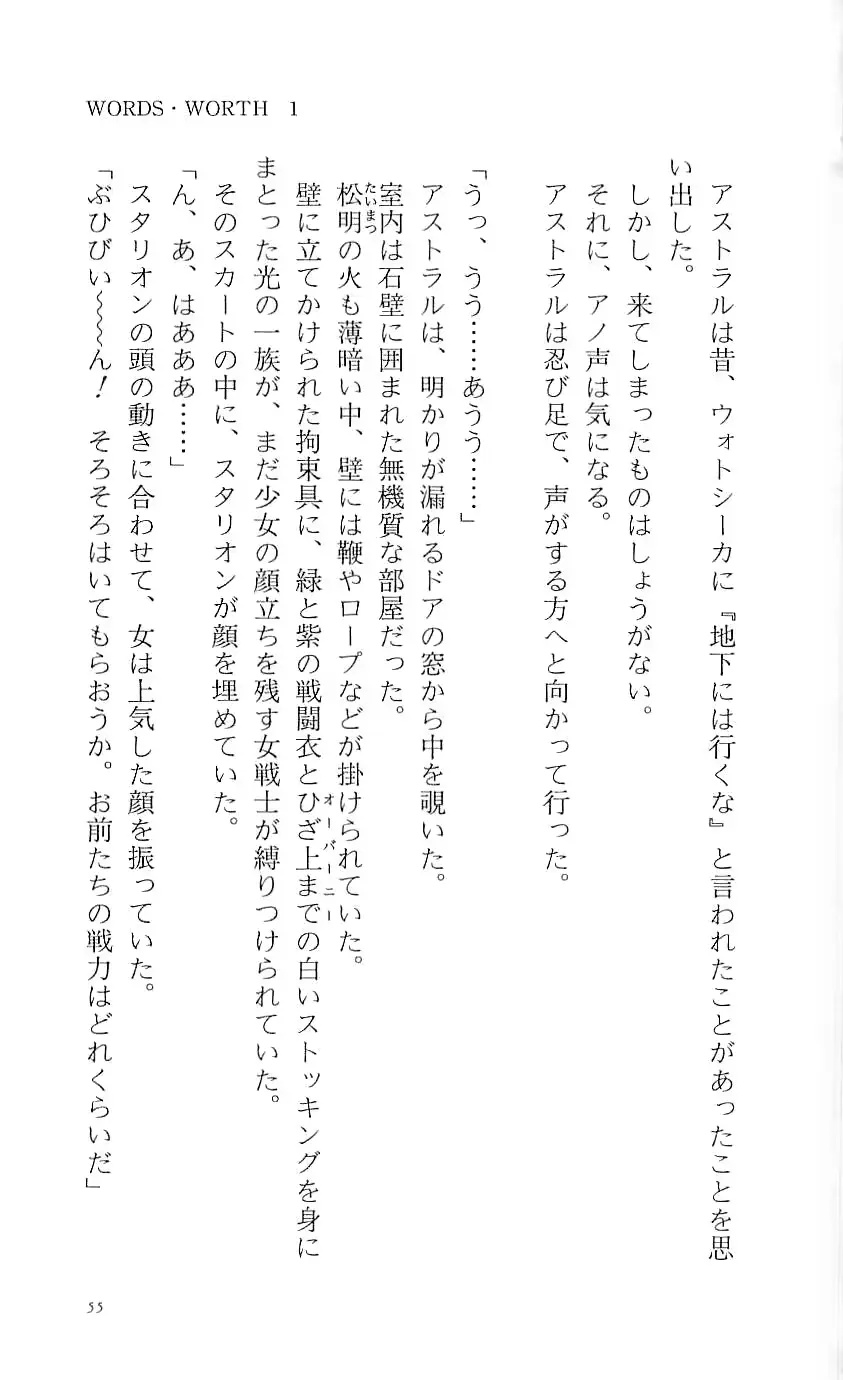 WORDS・WORTH 1
アストラルは昔、ウォトシーカに『地下には行くな』と言われたことがあったことを思
い出した。
しかし、来てしまったものはしょうがない。
それに、アノ声は気になる。
アストラルは忍び足で、声がする方へと向かって行った。
「うっ、うう……あうう……」
アストラルは、明かりが漏れるドアの窓から中を覗いた。
室内は石壁に囲まれた無機質な部屋だった。
松明の火も薄暗い中、壁には鞭やロープなどが掛けられていた。
たいまつ
壁に立てかけられた拘束具に、緑と紫の戦闘衣とひざ上までの白いストッキングを身に
オーバーニー
まとった光の一族が、まだ少女の顔立ちを残す女戦士が縛りつけられていた。
そのスカートの中に、スタリオンが顔を埋めていた。
「ん、あ、はあああ……」
スタリオンの頭の動きに合わせて、女は上気した顔を振っていた。
「ぶひびい〜〜〜ん！　そろそろはいてもらおうか。お前たちの戦力はどれくらいだ」
55